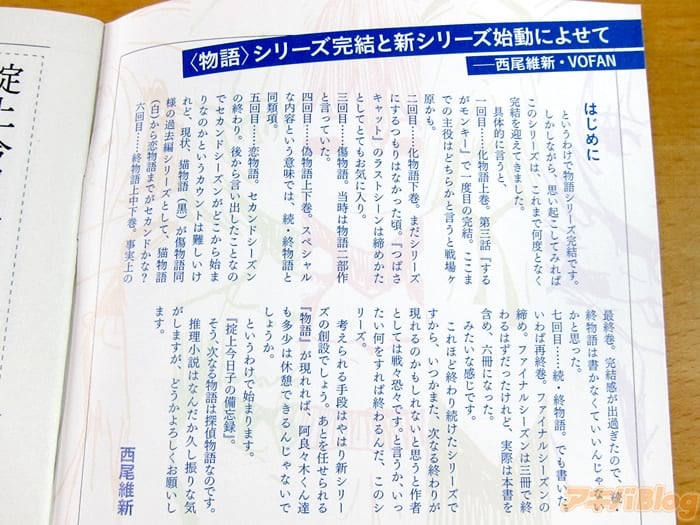 〈物語〉シリーズ完結と新シリーズ始動によせて
――西尾維新・VOFAN
はじめに
というわけで物語シリーズ完結です。
しかしながら、思い起こしてみれば
このシリーズは、これまで何度となく
完結を迎えてきました。
具体的に言うと、
一回目……化物語上巻。第三話『する
がモンキー』で一度目の完結。ここま
での主役はどちらかと言うと戦場ヶ
原かも。
二回目……化物語下巻。まだシリーズ
にするつもりはなかった頃。『つばさ
キャット』のラストシーンは締めかた
としてとてもお気に入り。
三回目……傷物語。当時は物語二部作
と言っていた。
四回目……偽物語上下巻。スペシャル
な内容という意味では、続・終物語と
同類項。
五回目……恋物語。セカンドシーズン
の終わり。後から言い出したことなの
でセカンドシーズンがどこから始ま
りなのかというカウントは難しいけ
れど、現状、猫物語（黒）が傷物語同
様の過去編シリーズとして、猫物語
（白）から恋物語までがセカンドかな？
六回目……終物語上中下巻。事実上の
最終巻。完結感が出過ぎたので、續・
終物語は書かなくていいんじゃない
かと思った。
七回目……続・終物語。でも書いた。
いわば再終巻。ファイナルシーズンの
締め。ファイナルシーズンは三冊で終
わるはずだったけれど、実際は本書を
含め、六冊になった。
みたいな感じです。
これほど終わり続けたシリーズで
すから、いつかまた、次なる終わりが
現れるのかもしれないと思うと作者
としては戦々恐々です。と言うか、いっ
たい何をすれば終わるんだ、このシ
リーズ。
考えられる手段はやはり新シリー
ズの創設でしょう。あとを任せられる
『物語』が現れれば、阿良々木くん達
も多少は休憩できるんじゃないで
しょうか。
というわけで始まります。
『掟上今日子の備忘録』。
そう、次なる物は探偵物語なのです。
推理小説はなんだか久し振りな気
がしますが、どうかよろしくお願いし
ます。
西尾維新
アキバBlog